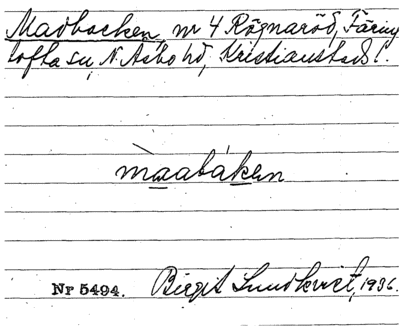 Madbacken, nr 4 Rögnaröd, Färing
tofta sn, N. Åsbo hd, Kristianstads l.
màabáken
Nr 5494. Birgit Lundkvist, 1936.